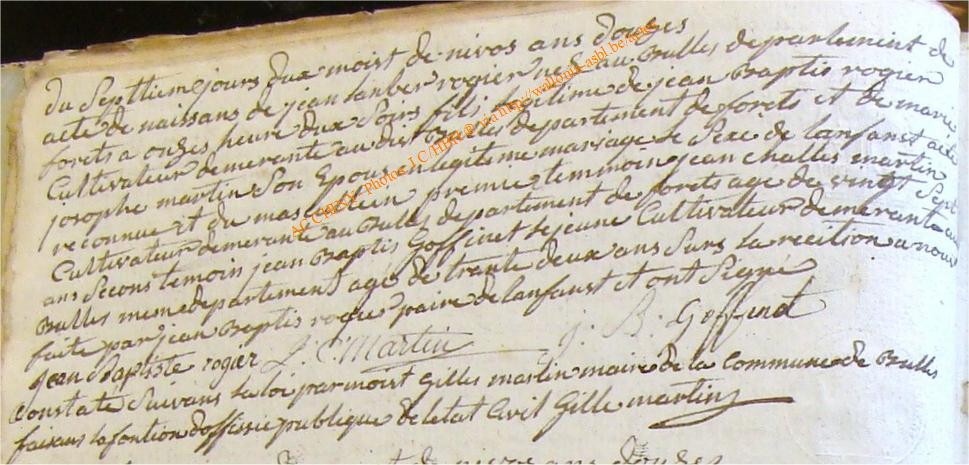 du Septtiem jours dux moist de nivos ans douzes
acte de naissans de jean lanber rogier ne au Bulles departement de
forets a onzes heure dux Soirs fils legitime de jean Baptis rogier
Cultivateur demerante au dist Bulles departement de forets et de marie
josephe martin Son Epouse en legitime mariage le Sexe de lanfanst acte
reconnue et du masculien premier temmoin jean challes martin
Cultivateur demerante au Bulles departement de forets age de vingt Sept
ans Second temoin jean Baptis Goffinet le jeune Cultivateur demerant au
Bulles meme departement age de trente deux ans Surs la recition a nous
faite par jean Baptis rogier paire de lanfanst et ont Signé
jean Baptiste rogier J C Martin J. B. Goffinet
Constate Suivans la loi par moit Gilles martin maire de la Commune de Bulles
faisans la fontion dofficie publique de letat Civil Gille martin
AC CHINY - Photos J.C.